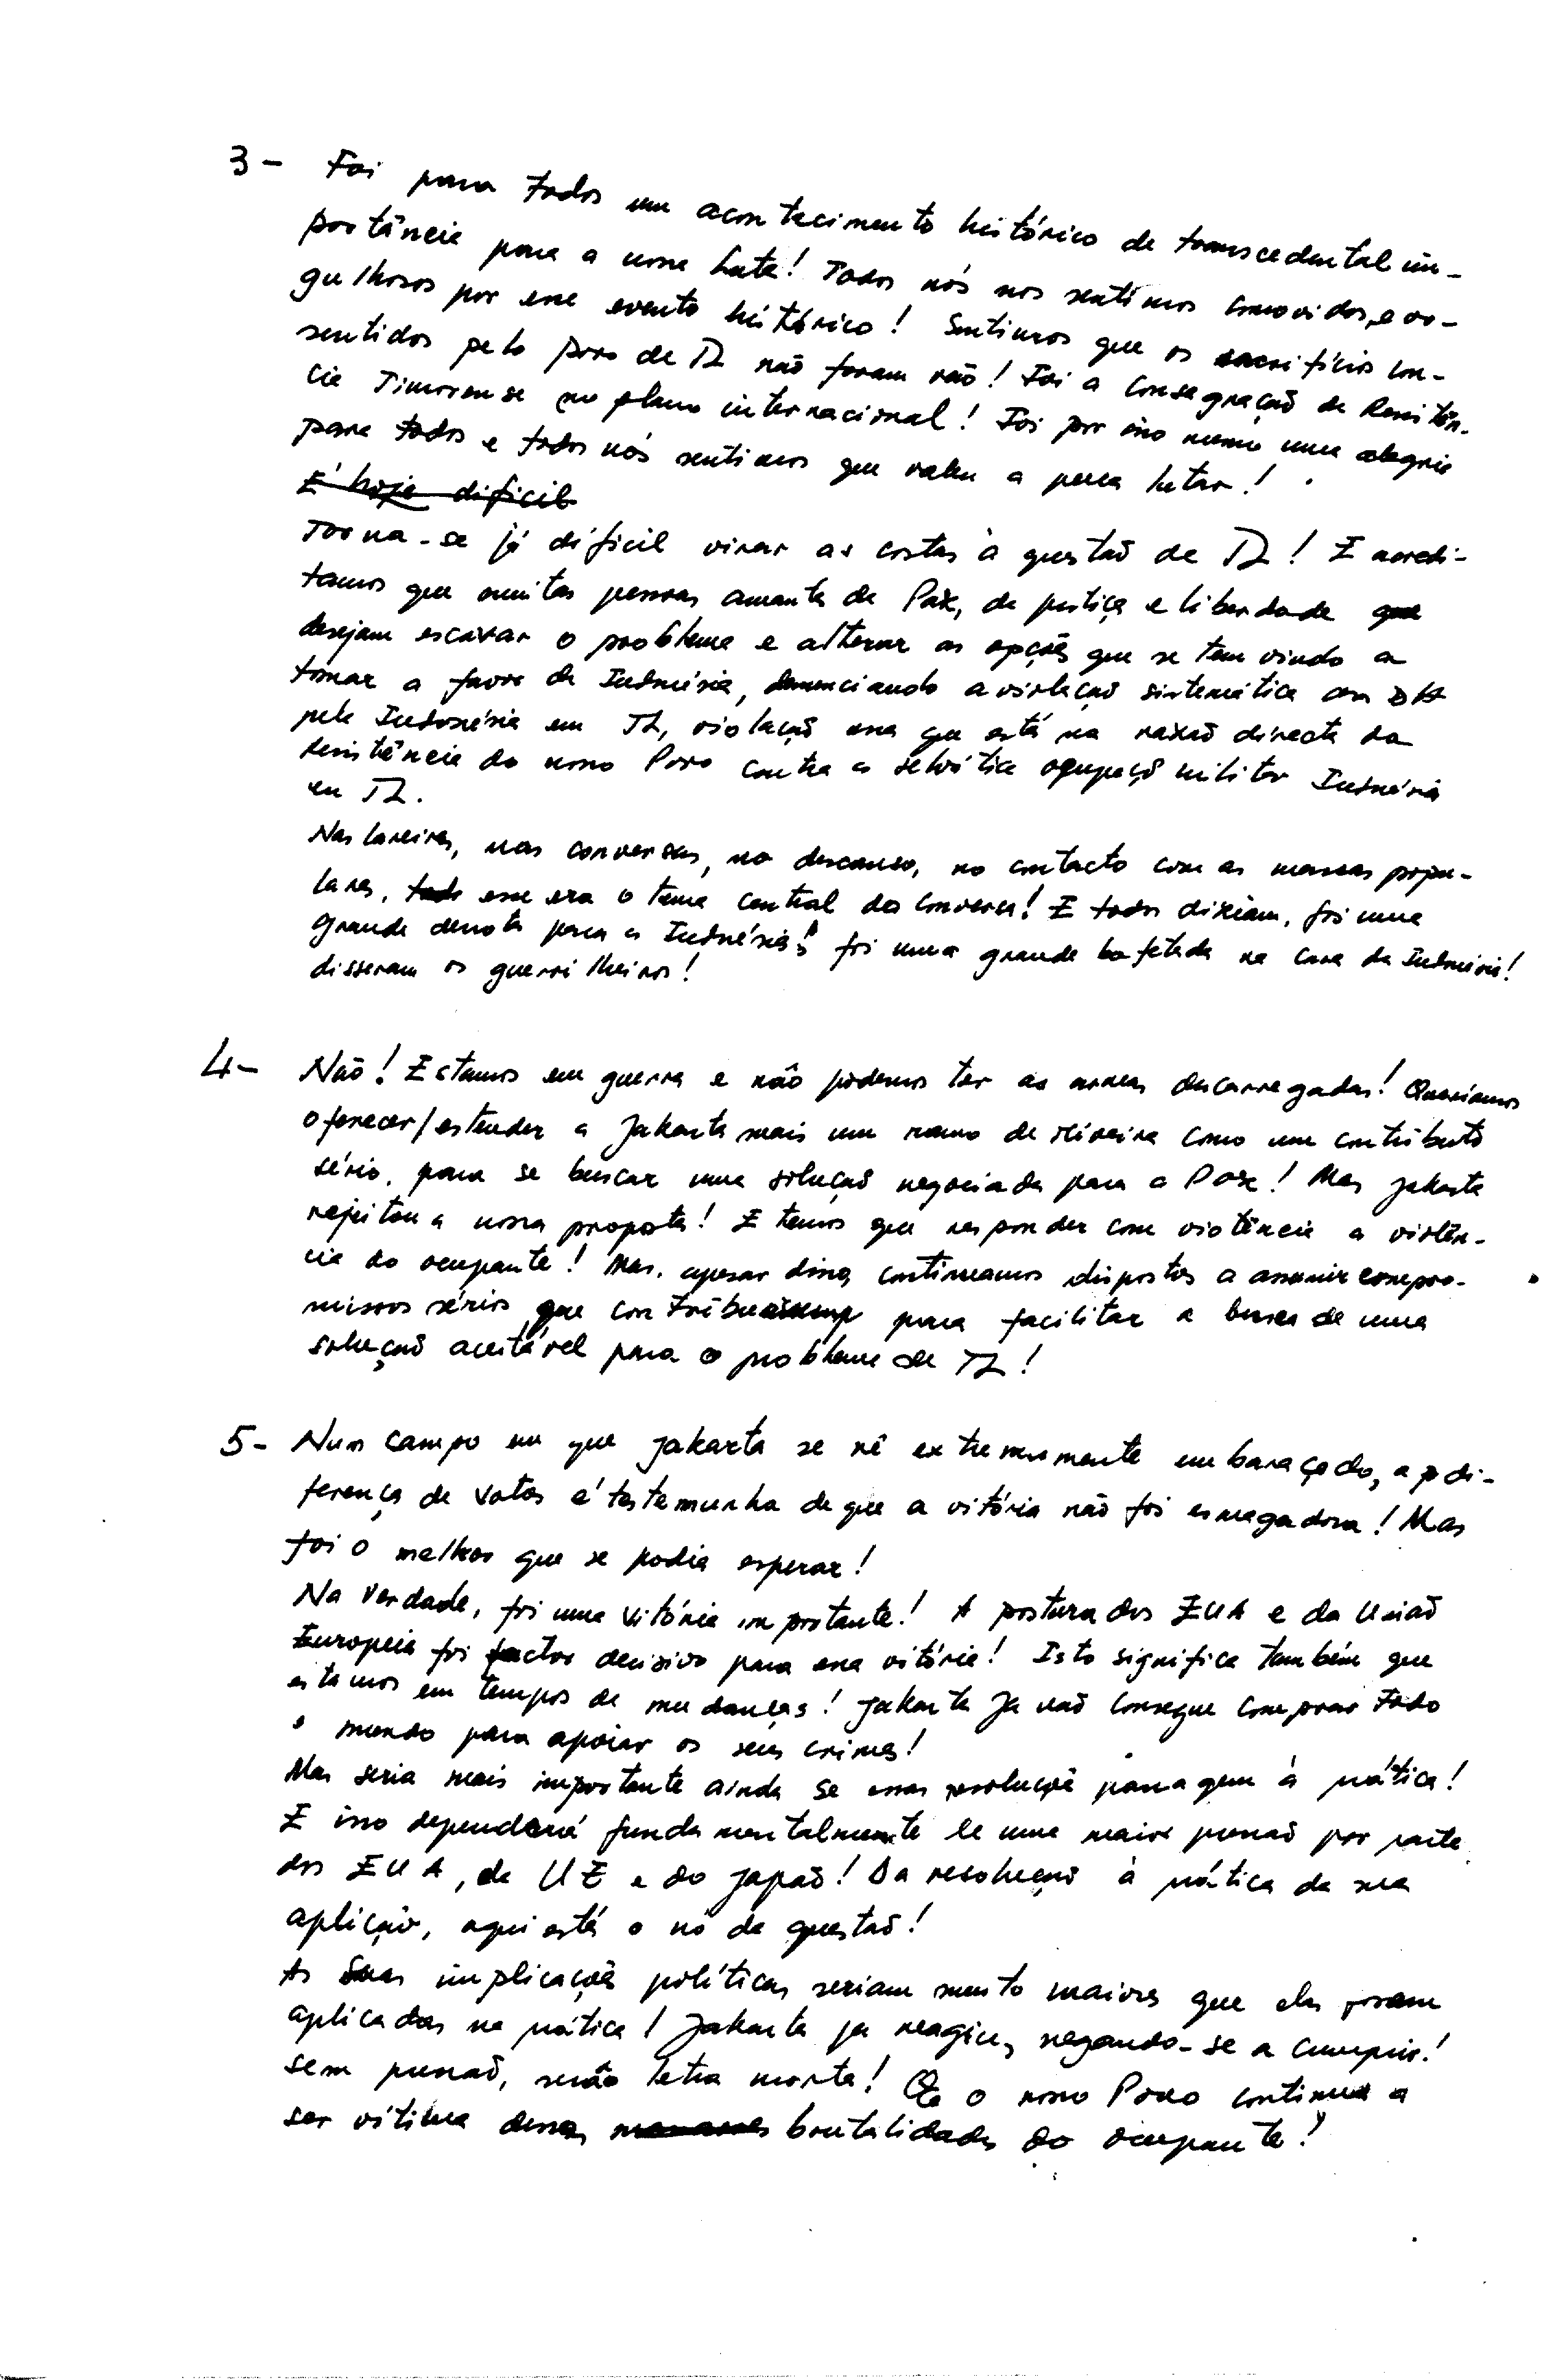 3 - Foi para todos um acontecimento histórico de transcedental im-
portância para a nossa luta! Todos nós nos sentimos comovidos, e or-
gulhosos por esse evento histórico! Sentimos que os sacrifícios con-
sentidos pelo Povo de TL não foram vão! Foi a consagração da Resistên-
cia Timorense no plano internacional! Foi por isso mesmo uma alegria
para todos e todos nós sentimos que valeu a pena lutar!
É hoje dificil
Torna-se já difícil virar as costas à questão de TL! E acredi-
tamos que muitas pessoas amantes da Paz, da justiça e liberdade que
desejam o problema e alterar as opções que se tem vindo a
tomar a favor da Indonésia, denunciando a violação sistemática dos DH
pela Indonésia em TL, violação essa que está na razão directa da
Resistência do nosso Povo contra a selvática ocupação militar Indonésia
em TL.
Nas lareiras, nas conversas, no descanso, no contacto com as massas popu-
lares, esse era o tema central da conversa! E todos diziam, foi uma
grande derrota para a Indonésia! foi uma grande bofetada na cara da Indonésia!
disseram os guerrilheiros!
4 - Não! Estamos em guerra e não podemos ter as armas descarregadas! Queríamos
oferecer/estender a Jakarta mais um ramo de oliveira como um contributo
sério, para se buscar uma solução negociada para a Paz! Mas Jakarta
rejeitou a nossa proposta! E temos que responder com violência a violên-
cia do ocupante! Mas, apesar disso, continuamos dispostos a assumir compro-
missos sérios que para facilitar a busca de uma
solução aceitável para o problema de TL!
5 - Num campo em que Jakarta se vê extremamente embaraçado, a di-
ferença de votos é testemunha de que a vitória não foi esmagadora! Mas
foi o melhor que se podia esperar!
Na verdade, foi uma vitória importante! A postura dos EUA e da União
Europeia foi factor decisivo para essa vitória! Isto significa também que
estamos em tempos de mudanças! Jakarta já não consegue comprar todo
o mundo para apoiar os seus crimes!
Mas seria mais importante ainda se essas resoluções passagem à prática!
E isso dependerá fundamentalmente de uma maior pressão por parte
dos EUA, da UE e do Japão! Da resolução à prática da sua
aplição, aqui está o nó da questão!
As suas implicações políticas seriam muito maiores que elas fossem
aplicadas na prática! Jakarta já reagiu, negando-se a cumprir!
Sem pressão, serão letra morta! E o nosso Povo continua a
ser vítima dessas brutalidades do ocupante!